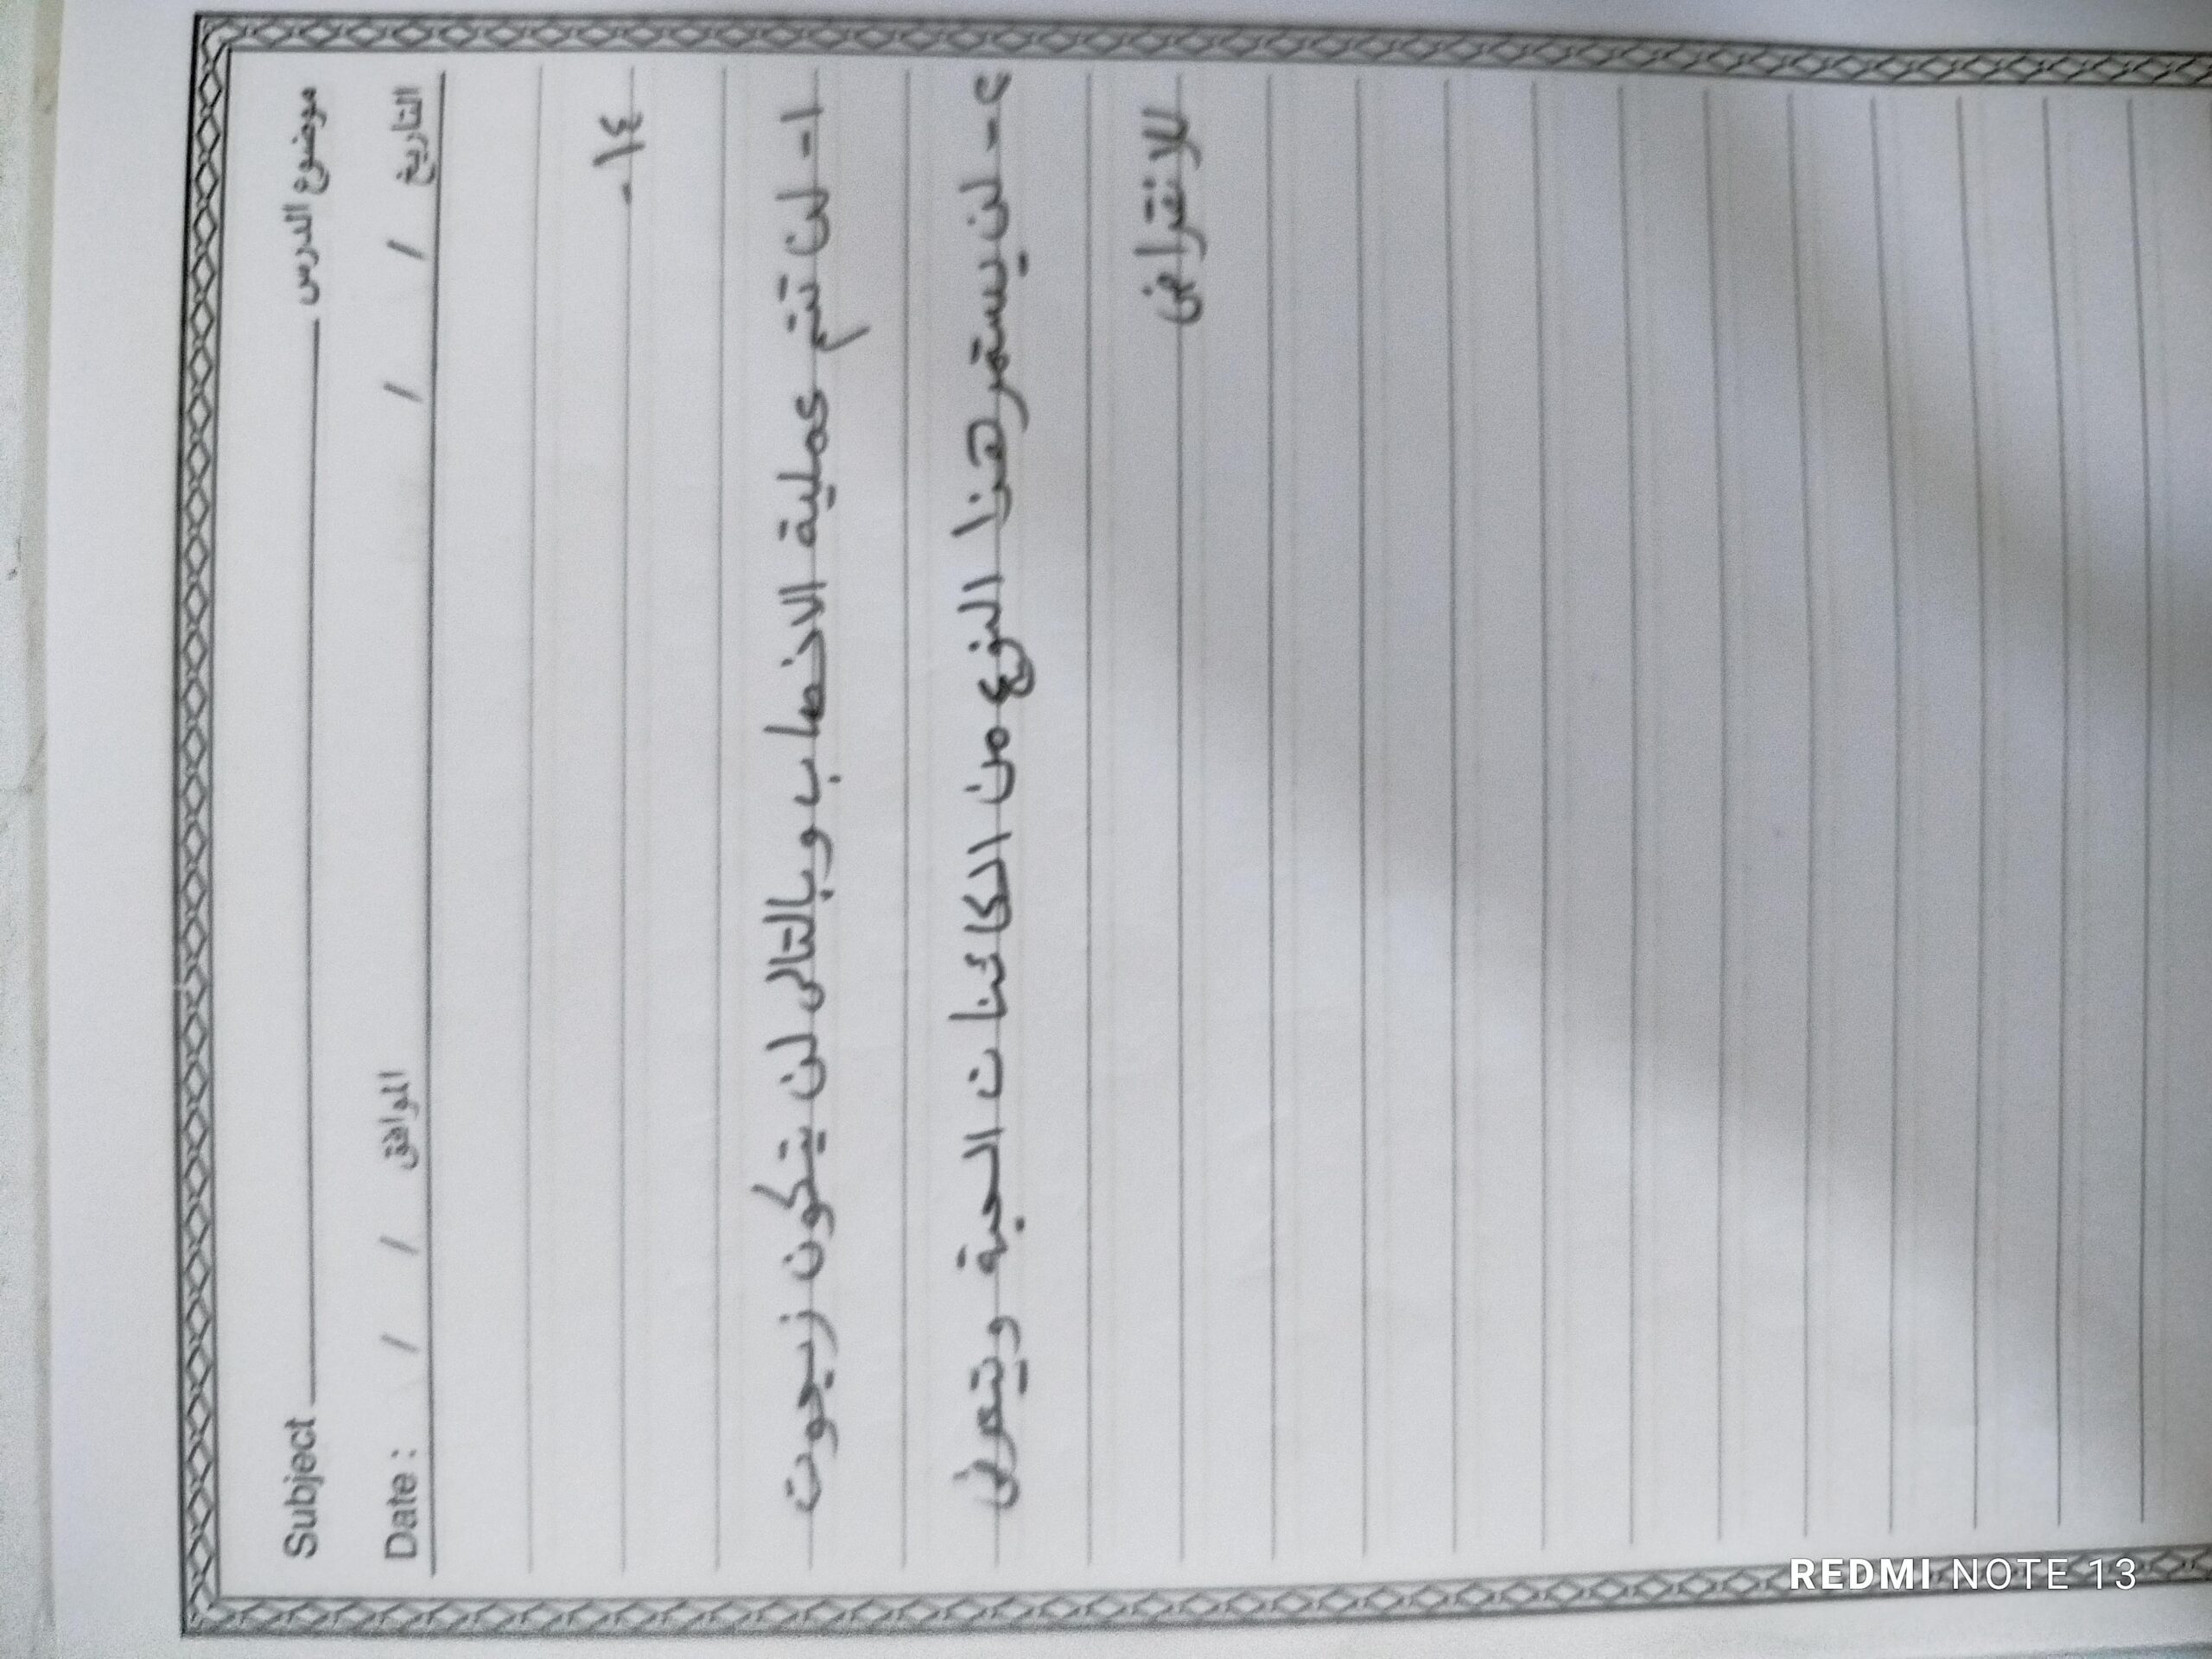 موضوع الدرس Subject
التاريخ / / الموافق / / Date :
١٤-
١- لن تتم عملية الاخصاب وبالتالى لن يتكون زيجوت
٢- لن يستمر هذا النوع من الكائنات الحية ويتعرض
للانقراض
REDMI NOTE 13